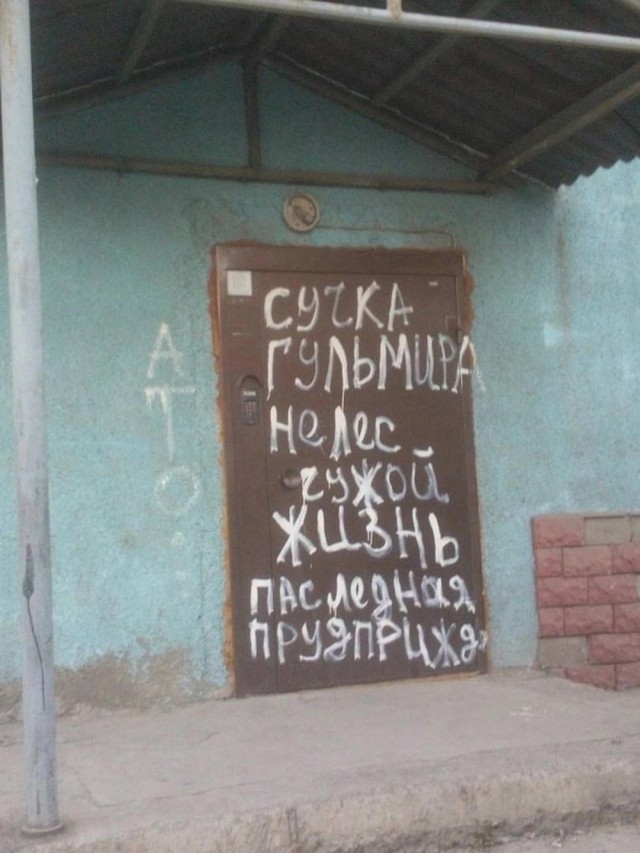 СУЧКА
ГУЛЬМИРА
НеЛес
чужой
ЖИЗНЬ
ПАСледНая
ПРУДПРИЖД
АТО